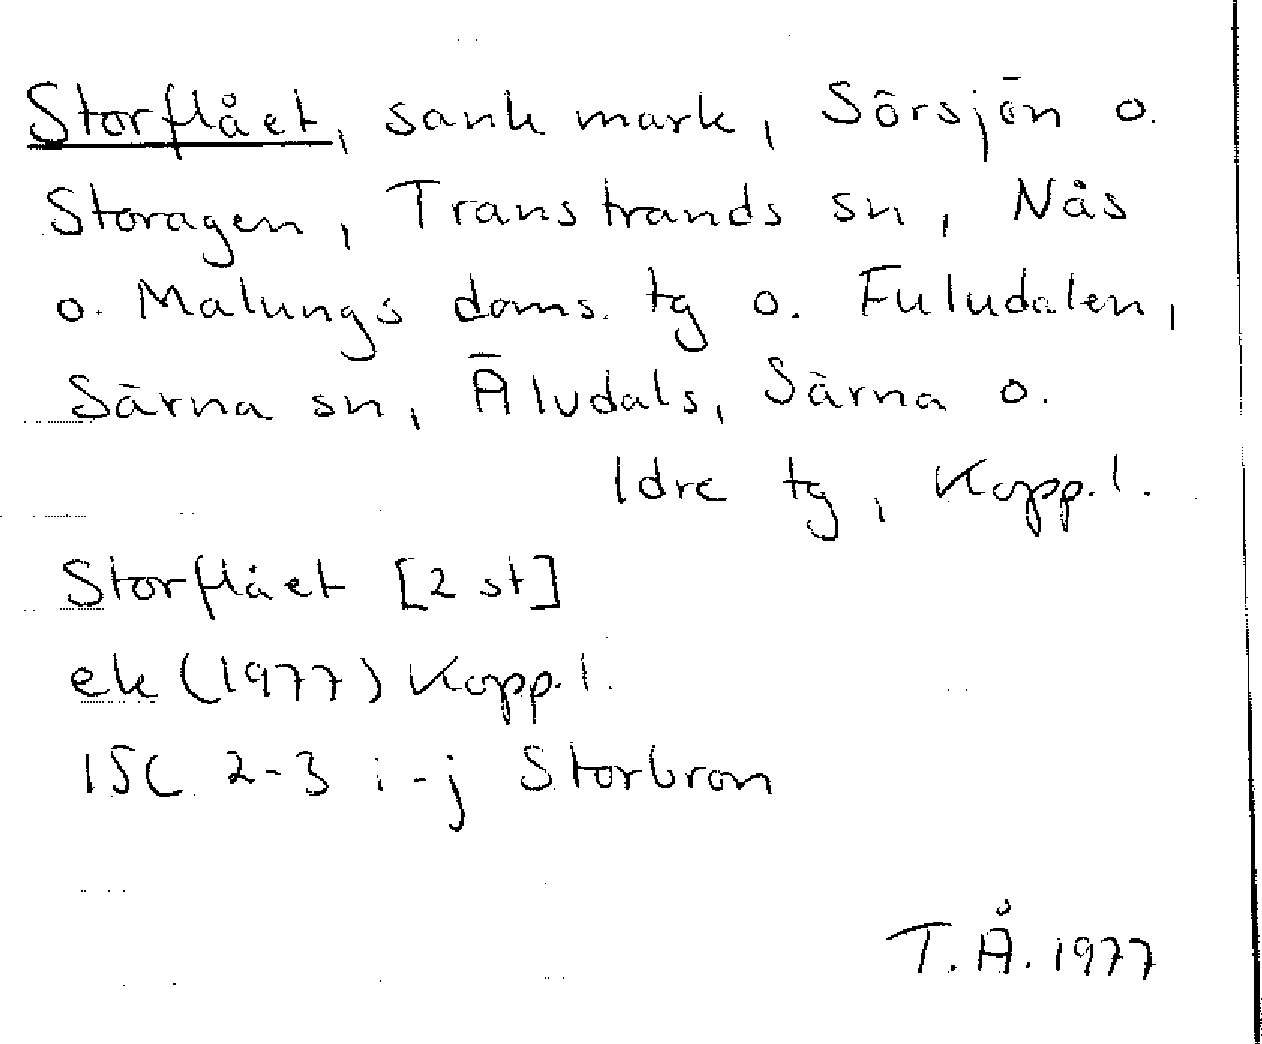 Storflået, sank mark, Sörsjön o.
Storagen, Transtrands sn, Nås
o. Malungs doms. tg o. Fuludalen,
Särna sn, Älvdals, Särna o.
Idre tg, Kopp.l.
Storflået [2 st]
ek (1977) Kopp.l.
15C 2-3 i-j Storbron
T.Å. 1977